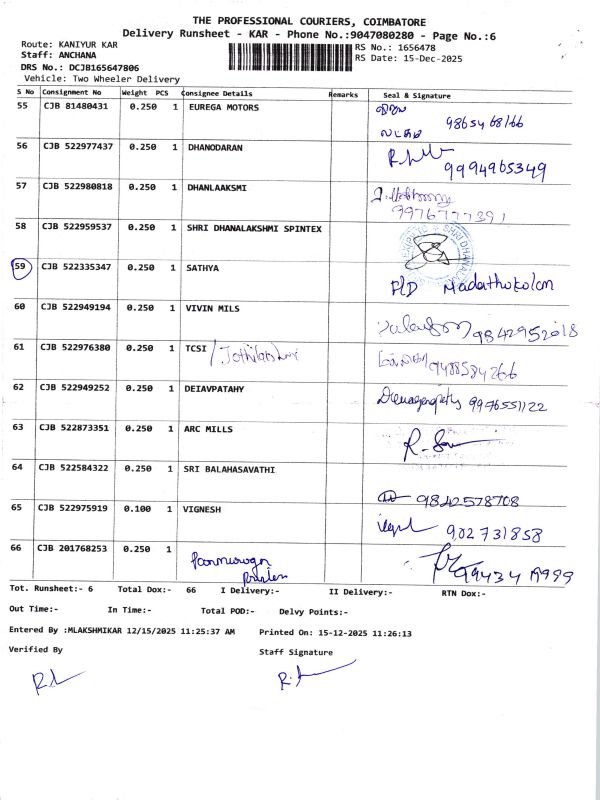 THE PROFESSIONAL COURIERS, COIMBATORE
Delivery Runsheet - KAR - Phone No.:9047080280 - Page No.:6
Route: KANIYUR KAR
RS No.: 1656478
Staff: ANCHANA
RS Date: 15-Dec-2025
DRS No.: DCJB165647806
Vehicle: Two Wheeler Delivery
S No Consignment No Weight PCS Consignee Details Remarks Seal & Signature
55 CJB 81480431 0.250 1 EUREGA MOTORS
9865468166
56 CJB 522977437 0.250 1 DHANODARAN
9994965349
57 CJB 522980818 0.250 1 DHANLAAKSMI
9976777391
58 CJB 522959537 0.250 1 SHRI DHANALAKSHMI SPINTEX
59 CJB 522335347 0.250 1 SATHYA
P/D Madathukolam
60 CJB 522949194 0.250 1 VIVIN MILS
9842952018
61 CJB 522976380 0.250 1 TCSI / Jothilakshmi
9488584266
62 CJB 522949252 0.250 1 DEIAVPATAHY
9976551122
63 CJB 522873351 0.250 1 ARC MILLS
64 CJB 522584322 0.250 1 SRI BALAHASAVATHI
9842578708
65 CJB 522975919 0.100 1 VIGNESH
902731858
66 CJB 201768253 0.250 1
Tot. Runsheet:- 6 Total Dox:- 66 I Delivery:- II Delivery:- RTN Dox:-
Out Time:- In Time:- Total POD:- Delvy Points:-
Entered By :MLAKSHMIKAR 12/15/2025 11:25:37 AM Printed On: 15-12-2025 11:26:13
Verified By Staff Signature